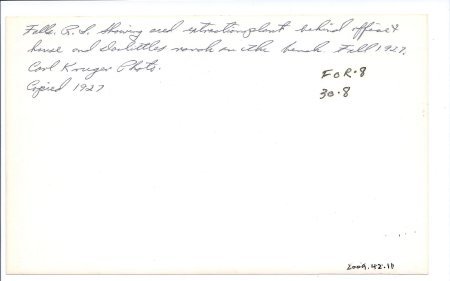 Falls, R.S. showing seed extraction plant behind office &
house and Doolittles ranch on the bench. Fall 1927.
Carl Krueger Photo.
Copied 1927
FOR·8
30·8
2009.42.11